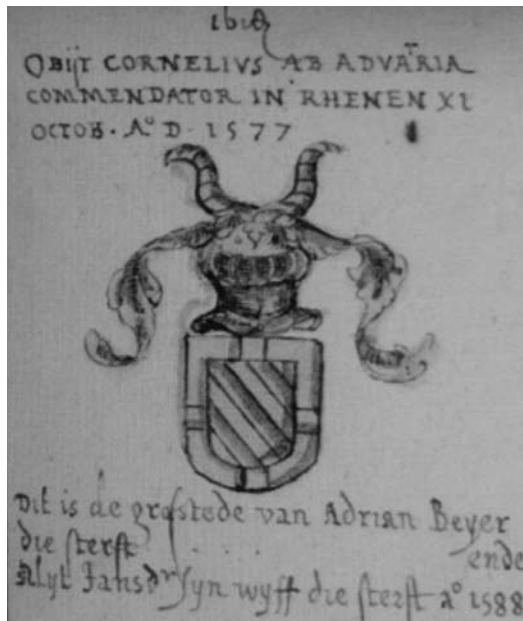 ibidē
OBIJT CORNELIVS AB ADVARIA
COMMENDATOR IN RHENEN XI
OCTOB. A° D. 1577
Dit is de grafstede van Adrian Beyer
die sterft . . . . . ende
Alyt Jansdr syn wyff die sterft a° 1588